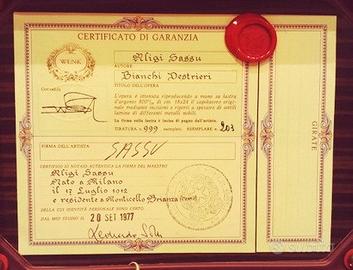 CERTIFICATO DI GARANZIA
WEMK
Aligi Sassu
AUTORE
Bianchi Destrieri
TITOLO DELL'OPERA
L'opera è ottenuta riproducendo a mano su lastra
d'argento 800‰, di cm. 18x24 il capolavoro origi-
nale mediante incisioni e riporti a spessore di sottili
lamine di differenti metalli nobili.
La firma sulla lastra è incisa di pugno dell'artista.
TIRATURA N. 999 esemplari. ESEMPLARE N. 203
FIRMA DELL'ARTISTA
SASSU
CERTIFICO IO NOTAIO AUTENTICA LA FIRMA DEL MAESTRO
Aligi Sassu
Nato a Milano
il 17 Luglio 1912
e residente a Monticello Brianza (Como)
DELLA CUI IDENTITÀ PERSONALE SONO CERTO
DAL MIO STUDIO IL 20 SET 1977
GIRATE